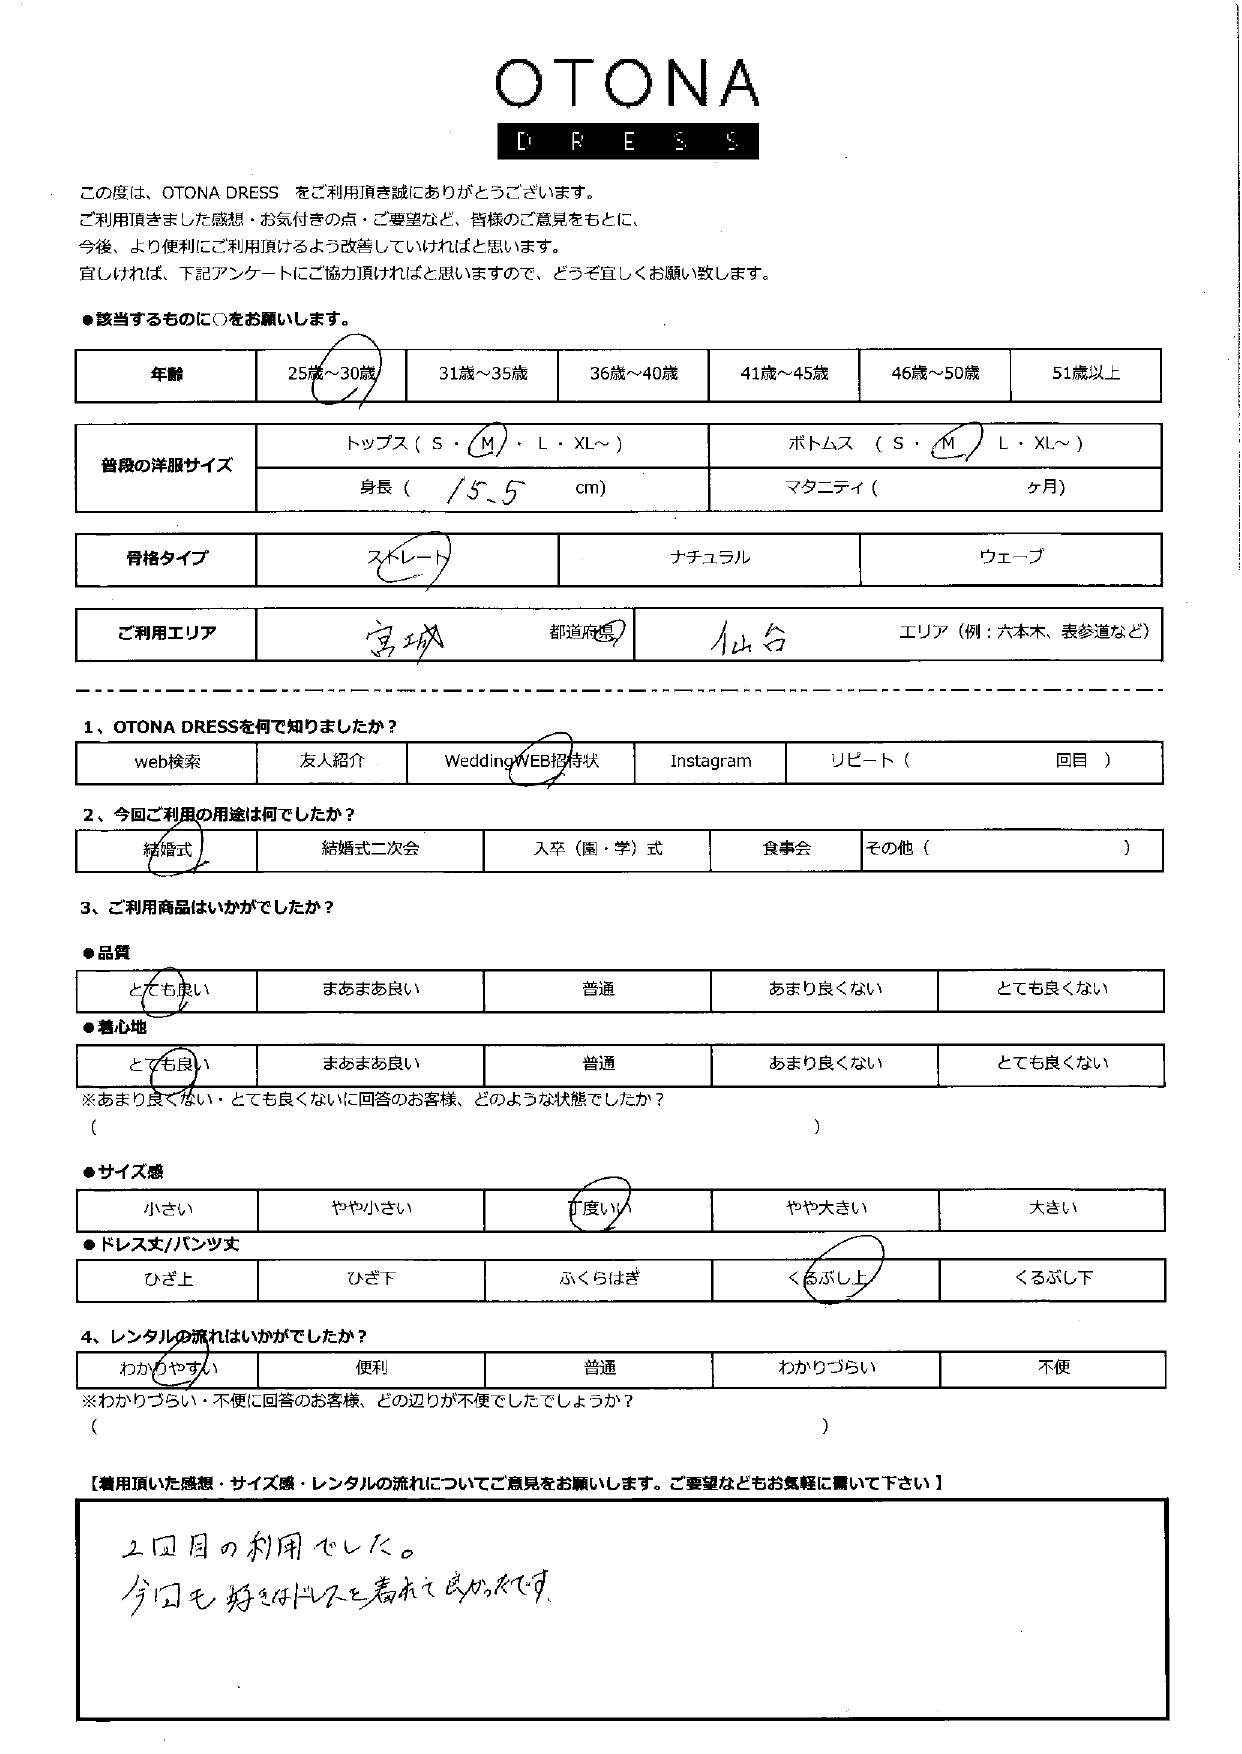 OTONA
DRESS
この度は、OTONA DRESS　をご利用頂き誠にありがとうございます。
ご利用頂きました感想・お気付きの点・ご要望など、皆様のご意見をもとに、
今後、より便利にご利用頂けるよう改善していければと思います。
宜しければ、下記アンケートにご協力頂ければと思いますので、どうぞ宜しくお願い致します。
●該当するものに○をお願いします。
年齢 25歳～30歳 31歳～35歳 36歳～40歳 41歳～45歳 46歳～50歳 51歳以上
普段の洋服サイズ トップス ( S ・ M ・ L ・ XL～ ) ボトムス ( S ・ M L ・ XL～ )
身長 ( 155 cm) マタニティ ( ヶ月)
骨格タイプ ストレート ナチュラル ウェーブ
ご利用エリア 宮城 都道府県 仙台 エリア（例：六本木、表参道など）
1、OTONA DRESSを何で知りましたか？
web検索 友人紹介 WeddingWEB招待状 Instagram リピート（ 回目 ）
2、今回ご利用の用途は何でしたか？
結婚式 結婚式二次会 入卒（園・学）式 食事会 その他（ ）
3、ご利用商品はいかがでしたか？
●品質
とても良い まあまあ良い 普通 あまり良くない とても良くない
●着心地
とても良い まあまあ良い 普通 あまり良くない とても良くない
※あまり良くない・とても良くないに回答のお客様、どのような状態でしたか？
( )
●サイズ感
小さい やや小さい 丁度いい やや大きい 大きい
●ドレス丈/パンツ丈
ひざ上 ひざ下 ふくらはぎ くるぶし上 くるぶし下
4、レンタルの流れはいかがでしたか？
わかりやすい 便利 普通 わかりづらい 不便
※わかりづらい・不便に回答のお客様、どの辺りが不便でしたでしょうか？
( )
【着用頂いた感想・サイズ感・レンタルの流れについてご意見をお願いします。ご要望などもお気軽に書いて下さい 】
2回目の利用でした。
今回も好きなドレスを着れて良かったです.